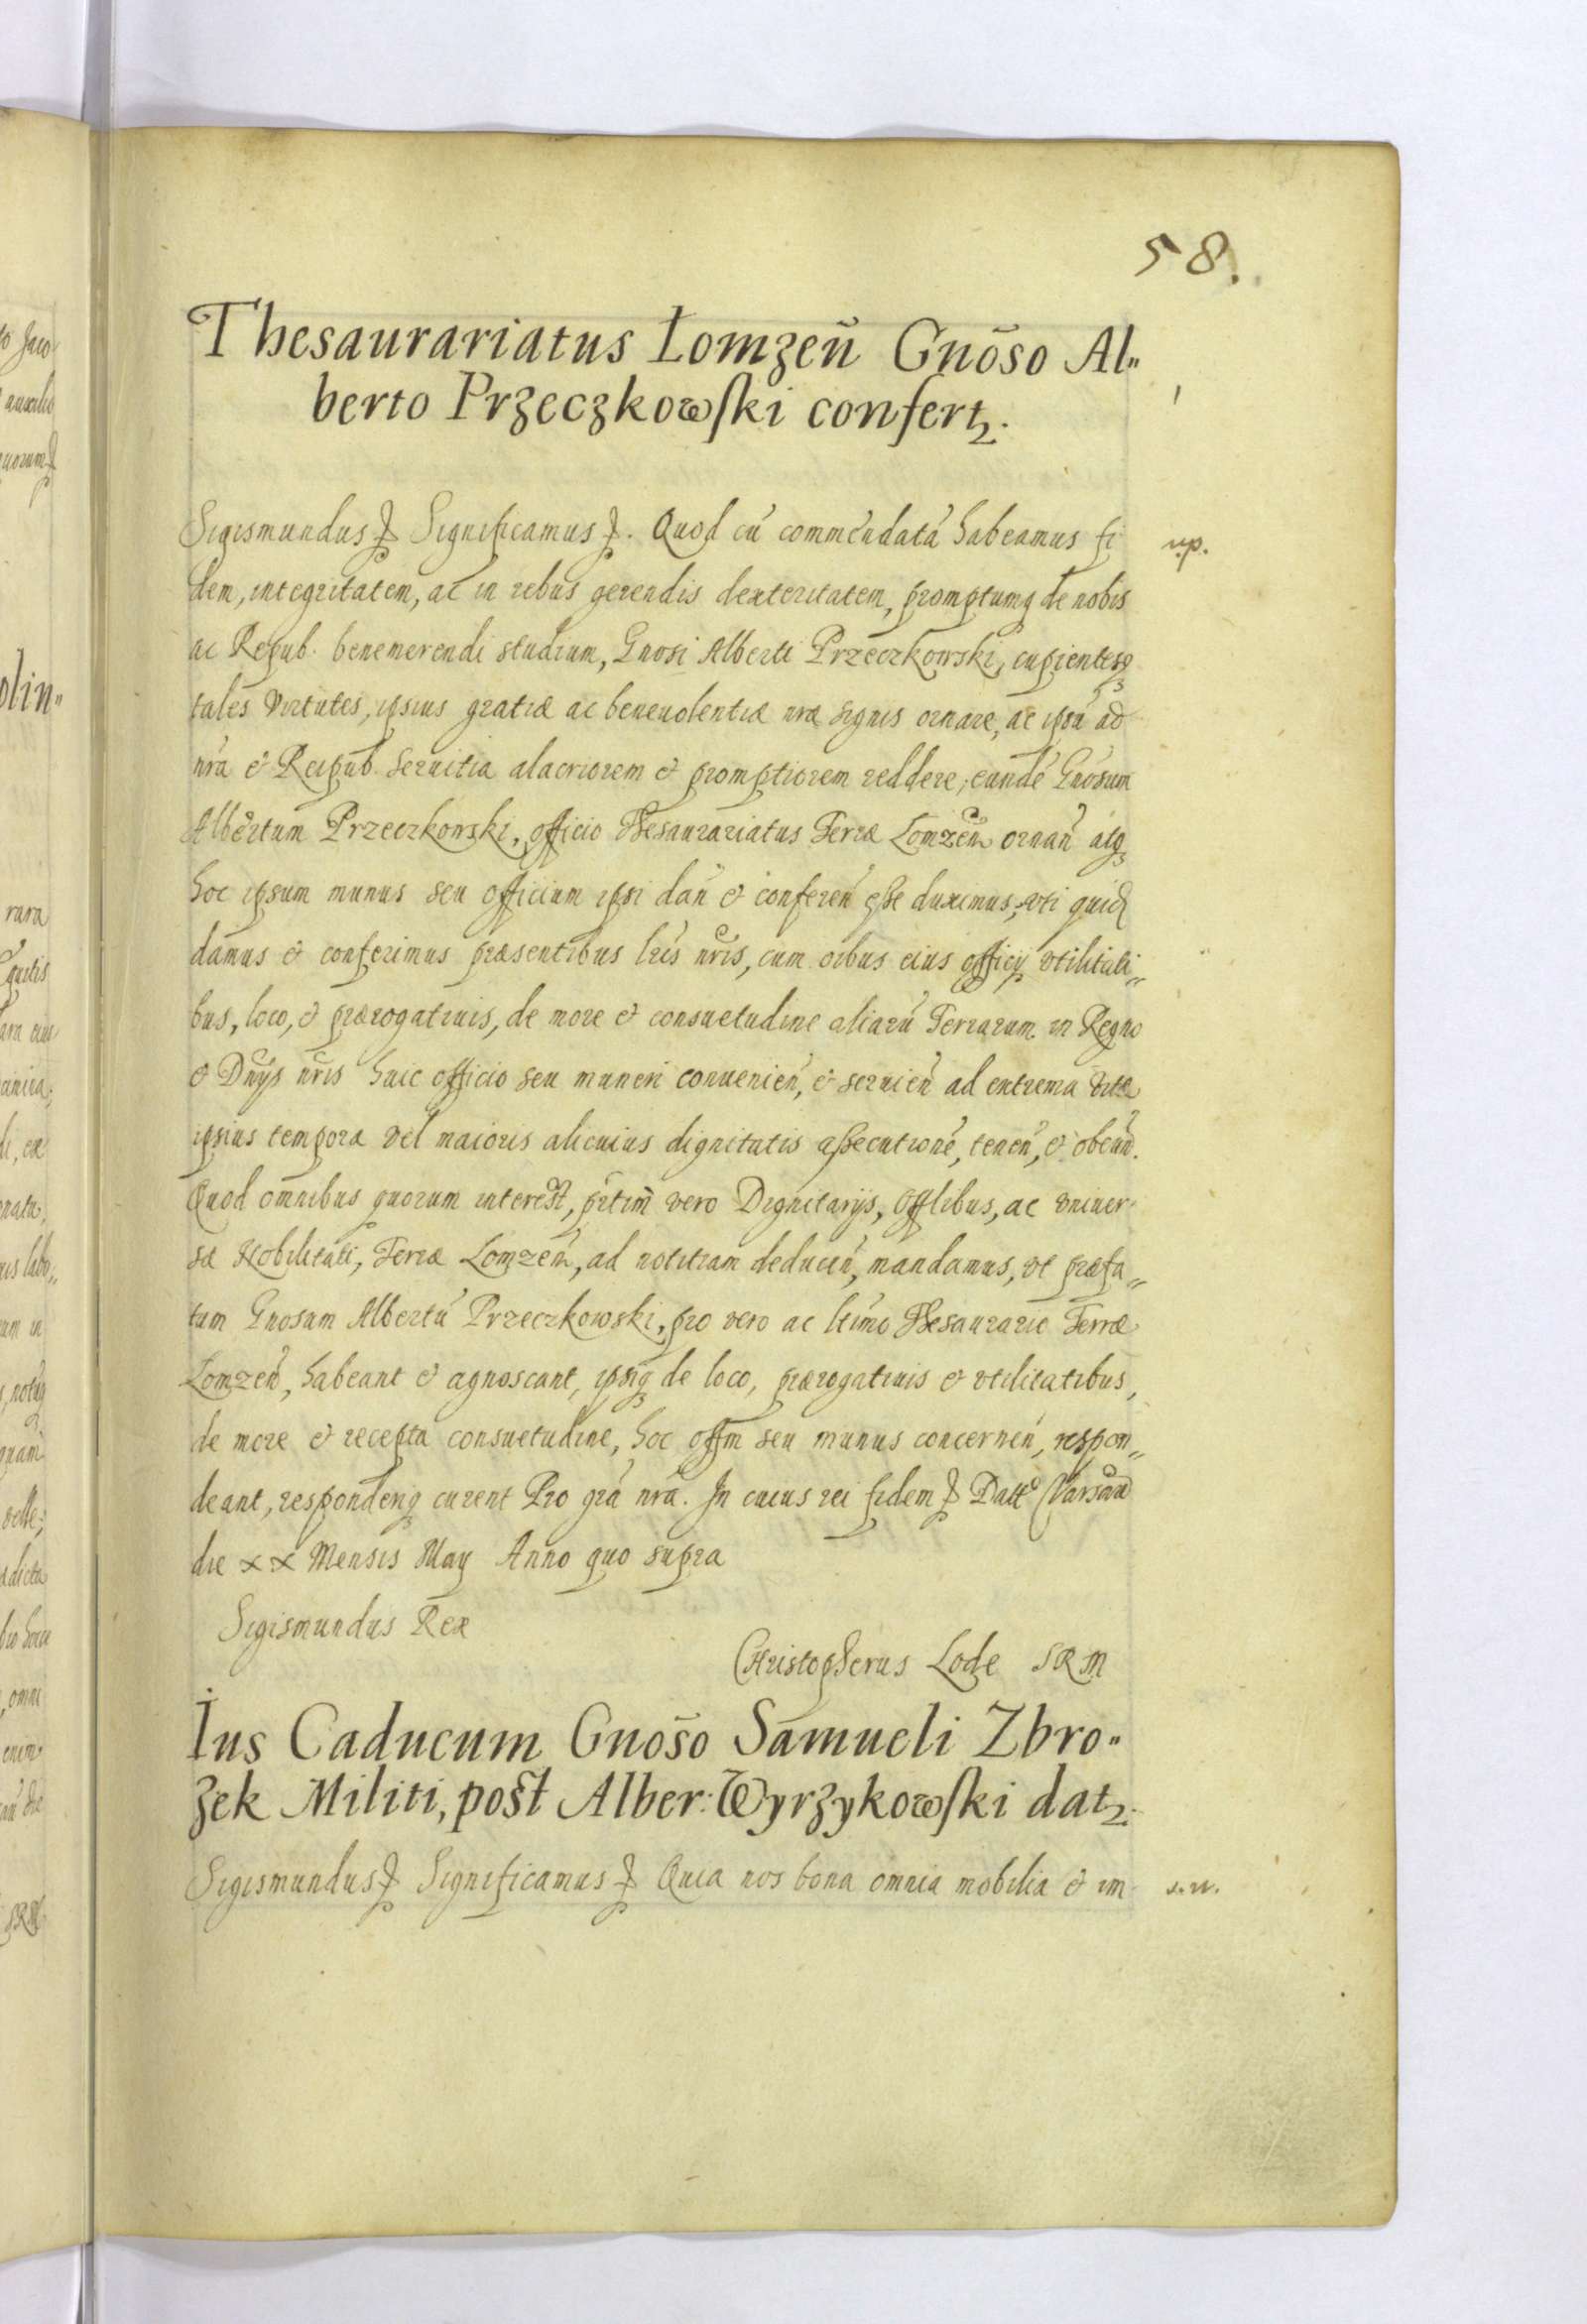 58.
Thesaurariatus Lomzeñ Gnõso Al„
berto Przeczkowski confert2.
Sigismundus Significamus. Quod cú commendatá habeamus fi
up.
dem, integritatem, ac in rebus gerendis dexteritatem, promptumq de nobis
ac Repub. benemerendi studium, Gnosi Alberti Przeczkowski, cupientesq
tales virtutes, ipsius gratiæ ac beneuolentiæ nræ signis ornare, ac ipsú ad
nrá & Reipub. seruitia alacriorem & promptiorem reddere, eundé Gnósum
Albertum Przeczkowski, officio Thesaurariatus Terræ Lomzeń ornań atq
hoc ipsum munus seu officium ipsi dań & confereń esse duximus, vti quid
damus & conferimus præsentibus lris nris, cum oibus eius officij vtilitati„
bus, loco, & prærogatiuis, de more & consuetudine aliarú Terrarum in Regno
& Dnijs nris huic officio seu muneri conuenień, & seruień ad extrema vitæ
ipsius tempora vel maioris alicuius dignitatis assecutioné, teneń, & obeuń.
Quod omnibus quorum interest, prtim vero Dignitarijs, Offlibus, ac vniuer
sæ Nobilitati, Terræ Lomzeń, ad notitiam deduceń, mandamus, vt præfa„
tum Gnosum Albertú Przeczkowski, pro vero ac ltimo Thesaurario Terræ
Lomzeń, habeant & agnoscant, ipsiq de loco, prærogatiuis & vtilitatibus,
de more & recepta consuetudine, hoc offm seu munus concerneń, respon„
deant, responderiq curent Pro grá nrá. In cuius rei fidem Datt Varsaú
die xx Mensis May Anno quo supra
Sigismundus Rex
Christopherus Lode SRM
Ius Caducum Gnõso Samueli Zbro„
zek Militi, post Alber: Wyrzykowski dat2.
Sigismundus Significamus Quia nos bona omnia mobilia & im
s.n.